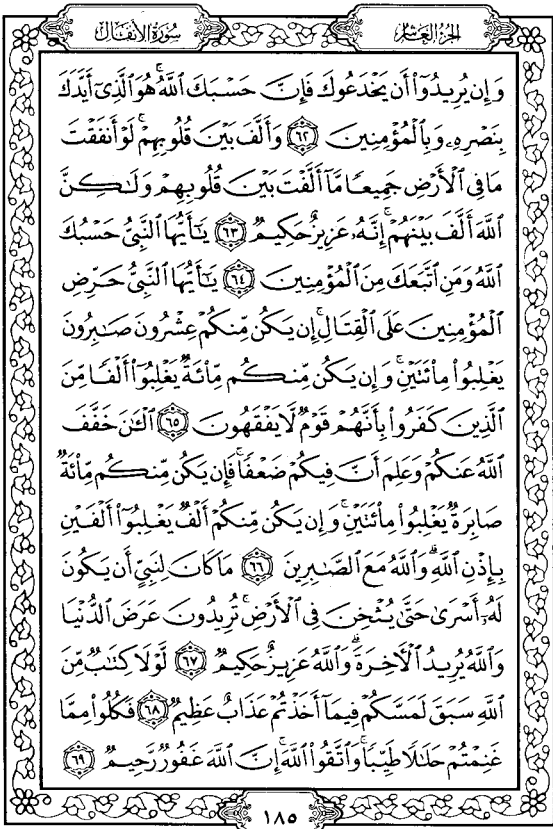 سُورَةُ الأَنفَال
الجُزْءُ العَاشِر
وَإِن يُرِيدُوٓا۟ أَن يَخْدَعُوكَ فَإِنَّ حَسْبَكَ ٱللَّهُ ۚ هُوَ ٱلَّذِىٓ أَيَّدَكَ
بِنَصْرِهِۦ وَبِٱلْمُؤْمِنِينَ ٦٢ وَأَلَّفَ بَيْنَ قُلُوبِهِمْ ۚ لَوْ أَنفَقْتَ
مَا فِى ٱلْأَرْضِ جَمِيعًا مَّآ أَلَّفْتَ بَيْنَ قُلُوبِهِمْ وَلَـٰكِنَّ
ٱللَّهَ أَلَّفَ بَيْنَهُمْ ۚ إِنَّهُۥ عَزِيزٌ حَكِيمٌ ٦٣ يَـٰٓأَيُّهَا ٱلنَّبِىُّ حَسْبُكَ
ٱللَّهُ وَمَنِ ٱتَّبَعَكَ مِنَ ٱلْمُؤْمِنِينَ ٦٤ يَـٰٓأَيُّهَا ٱلنَّبِىُّ حَرِّضِ
ٱلْمُؤْمِنِينَ عَلَى ٱلْقِتَالِ ۚ إِن يَكُن مِّنكُمْ عِشْرُونَ صَـٰبِرُونَ
يَغْلِبُوا۟ مِا۟ئَتَيْنِ ۚ وَإِن يَكُن مِّنكُم مِّا۟ئَةٌ يَغْلِبُوٓا۟ أَلْفًا مِّنَ
ٱلَّذِينَ كَفَرُوا۟ بِأَنَّهُمْ قَوْمٌ لَّا يَفْقَهُونَ ٦٥ ٱلْـَٔـٰنَ خَفَّفَ
ٱللَّهُ عَنكُمْ وَعَلِمَ أَنَّ فِيكُمْ ضَعْفًا ۚ فَإِن يَكُن مِّنكُم مِّا۟ئَةٌ
صَابِرَةٌ يَغْلِبُوا۟ مِا۟ئَتَيْنِ ۚ وَإِن يَكُن مِّنكُمْ أَلْفٌ يَغْلِبُوٓا۟ أَلْفَيْنِ
بِإِذْنِ ٱللَّهِ ۗ وَٱللَّهُ مَعَ ٱلصَّـٰبِرِينَ ٦٦ مَا كَانَ لِنَبِىٍّ أَن يَكُونَ
لَهُۥٓ أَسْرَىٰ حَتَّىٰ يُثْخِنَ فِى ٱلْأَرْضِ ۚ تُرِيدُونَ عَرَضَ ٱلدُّنْيَا
وَٱللَّهُ يُرِيدُ ٱلْـَٔاخِرَةَ ۗ وَٱللَّهُ عَزِيزٌ حَكِيمٌ ٦٧ لَّوْلَا كِتَـٰبٌ مِّنَ
ٱللَّهِ سَبَقَ لَمَسَّكُمْ فِيمَآ أَخَذْتُمْ عَذَابٌ عَظِيمٌ ٦٨ فَكُلُوا۟ مِمَّا
غَنِمْتُمْ حَلَـٰلًا طَيِّبًا ۚ وَٱتَّقُوا۟ ٱللَّهَ ۚ إِنَّ ٱللَّهَ غَفُورٌ رَّحِيمٌ ٦٩
١٨٥